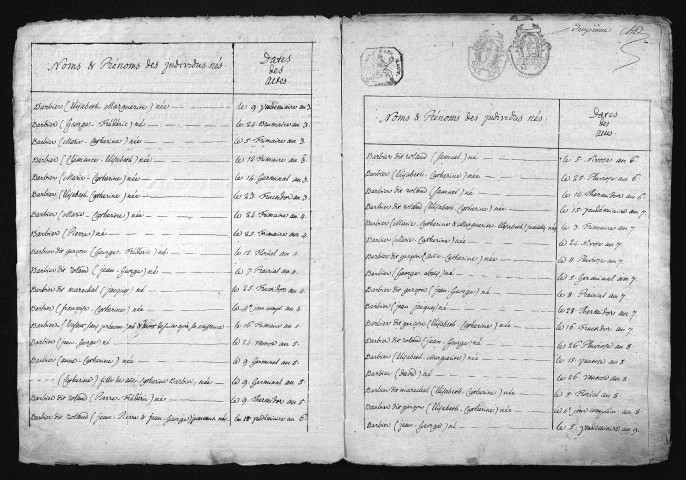 Noms & Prénoms des jndividus nés.
Dates
des
actes
Barbier (Elisabeth Marguerite) née le 9. vendémiaire an 3.
Barbier (George Fréderic) né le 24 Brumaire an 3.
Barbier (Marie-Catherine) née le 5. Frimaire an 3.
Barbier (Clemence-Elisabeth) née le 12 Frimaire an 3.
Barbier (Marie-Catherine) née le 14 Germinal an 3.
Barbier (Elisabeth-Catherine) née le 23. Fructidor an 3.
Barbier (Marie-Catherine) née le 24 Frimaire an 4.
Barbier (Pierre) né le 25 Frimaire an 4.
Barbier dit garçon (George Fréderic) né le 12 floréal an 4.
Barbier dit roland (jean-George) né le 7 Prairial an 4.
Barbier dit marechal (jacques) né le 25 Fructidor an 4.
Barbier (françoise-Catherine) née le 4e jour compl. an 4.
Barbier (enfant sans prénom né & mort de suite après sa naissance le 16 Frimaire an 5.
Barbier (jean-George) né le 24 ventose an 5.
Barbier (anne-Catherine) née le 9. Germinal an 5.
(Catherine) fille de anne Catherine Barbier, née le 9. Germinal an 5.
Barbier dit roland (Pierre-Fréderic) né le 9. Thermidor an 5.
Barbier dit roland (jean-Pierre & jean-George) jumeaux nés le 18 vendémiaire an 6.
deuxième
Noms & Prénoms des jndividus nés
Dates
des
actes
Barbier dit roland (samuel) né le 5 nivose an 6.
Barbier (Elisabeth-Catherine) née le 25. Pluviose an 6.
Barbier dit roland (samuel) né le 14 Thermidor an 6.
Barbier dit roland (Elisabeth-Catherine) née le 15 vendémiaire an 7.
Barbier (Marie-Catherine & Marguerite Elisabeth) jumelles nées le 3 Frimaire an 7
Barbier (Marie-Catherine) née le 24 nivose an 7.
Barbier dit garçon (anne-Catherine) née le 11 Pluviose an 7.
Barbier (George) né le 5 Germinal an 7
Barbier dit garçon (jean-George) né le 8 Prairial an 7
Barbier (jean-jacques) né le 28 Thermidor an 7
Barbier dit garçon (Elisabeth-Catherine) née le 16 Fructidor an 7.
Barbier dit roland (jean-George) né le 26 Pluviose an 8
Barbier (Elisabeth-Marguerite) née le 15 ventose an 8.
Barbier (david) né le 26 ventose an 8
Barbier dit marechal (Elisabeth-Catherine) née le 5 floréal an 8
Barbier dit garçon (Elisabeth-Catherine) née le 2e jour complém. an 8
Barbier (jean-George) né le 5 vendémiaire an 9.